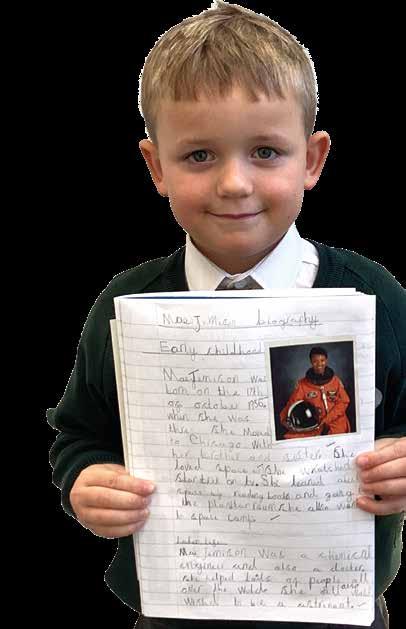 Mae Jemison biography
Early childhood
Mae Jemison was
born on the 17th
of october 1956
when she was
three she Moved
to Chicago with
her brother and sister. She
loved space she watched
star trek on tv. She learned
space by reading books and going
the planetarium she also went
to space camp
Mae Jemison was a chemical
engineer and also a doctor
she helped lots of people all
over the world she always
wished to be a astronaut.